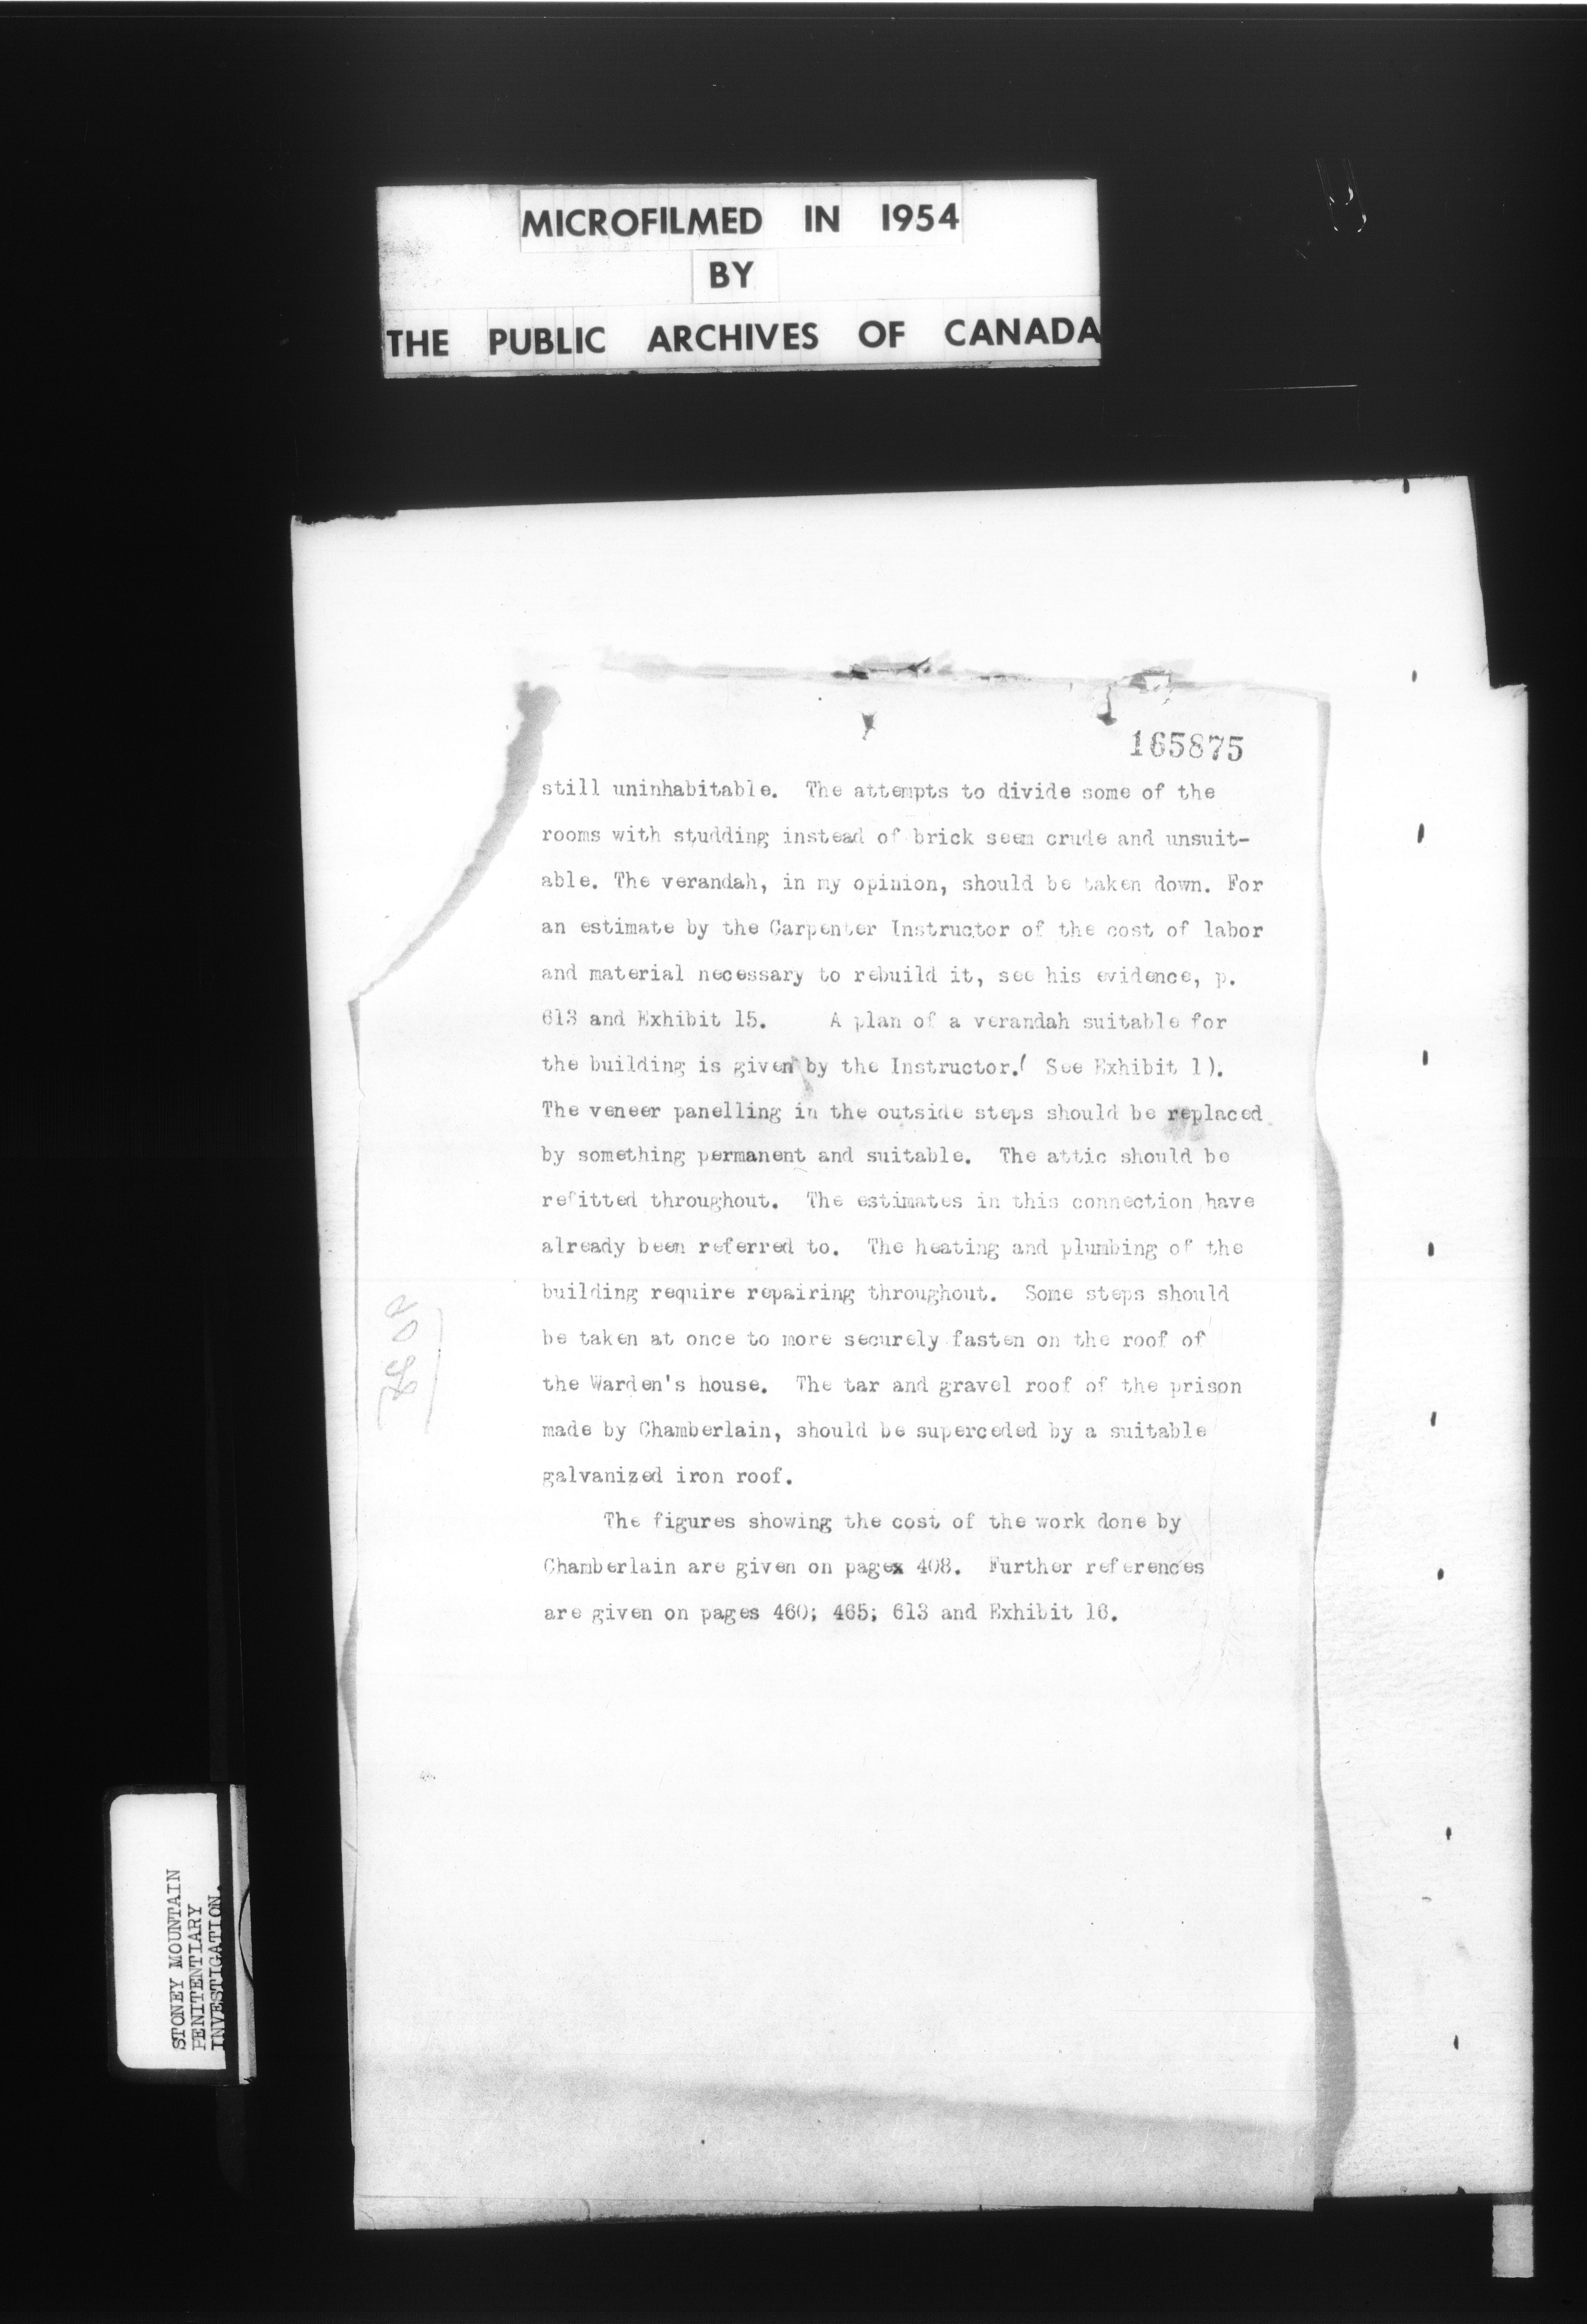 MICROFILMED IN 1954
BY
THE PUBLIC ARCHIVES OF CANADA
165875
still uninhabitable. The attempts to divide some of the
rooms with studding instead of brick seem crude and unsuit-
able. The verandah, in my opinion, should be taken down. For
an estimate by the Carpenter Instructor of the cost of labor
and material necessary to rebuild it, see his evidence, p.
613 and Exhibit 15. A plan of a verandah suitable for
the building is given by the Instructor.( See Exhibit 1).
The veneer panelling in the outside steps should be replaced
by something permanent and suitable. The attic should be
refitted throughout. The estimates in this connection have
already been referred to. The heating and plumbing of the
building require repairing throughout. Some steps should
be taken at once to more securely fasten on the roof of
the Warden's house. The tar and gravel roof of the prison
made by Chamberlain, should be superceded by a suitable
galvanized iron roof.
The figures showing the cost of the work done by
Chamberlain are given on pagex 408. Further references
are given on pages 460; 465; 613 and Exhibit 16.
STONEY MOUNTAIN
PENITENTIARY
INVESTIGATION.